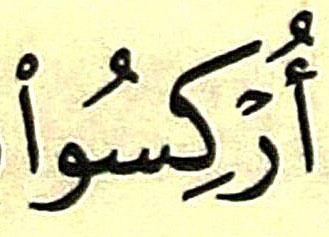 أُرْكِسُوا۟